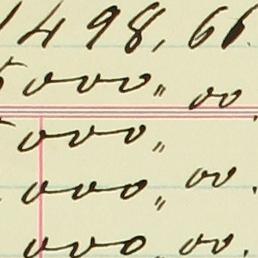 1498,66
5000,, 00
5000,,
000,, 00.
000, 00.